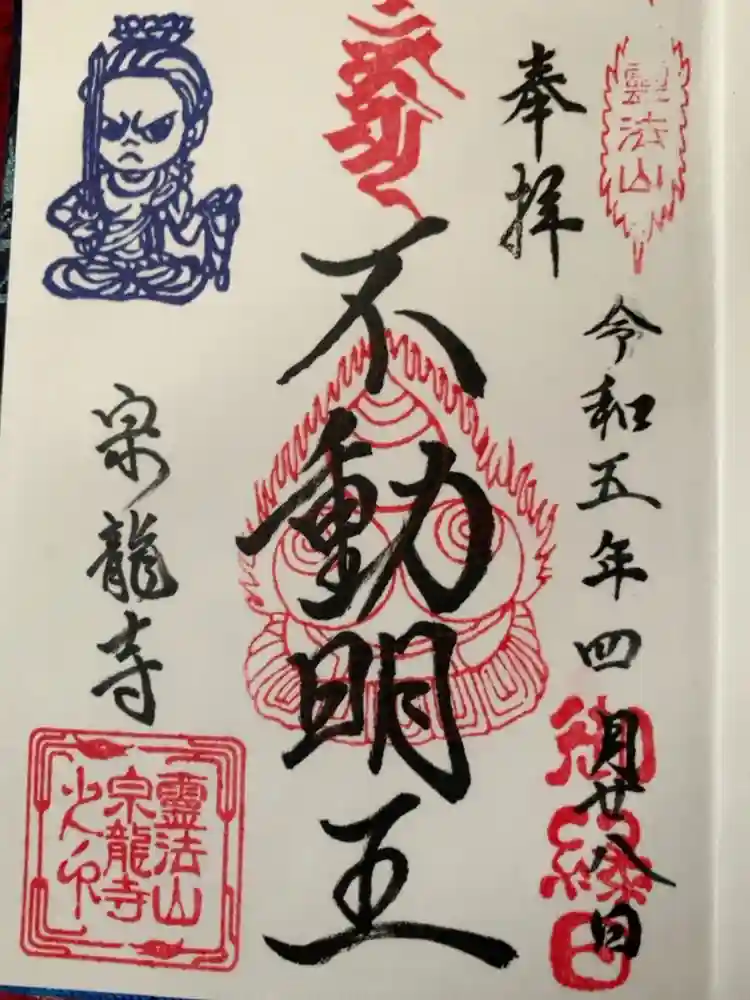 靈法山
奉拝
令和五年四月廿八日
御縁日
不動明王
宗龍寺
靈法山
宗龍寺